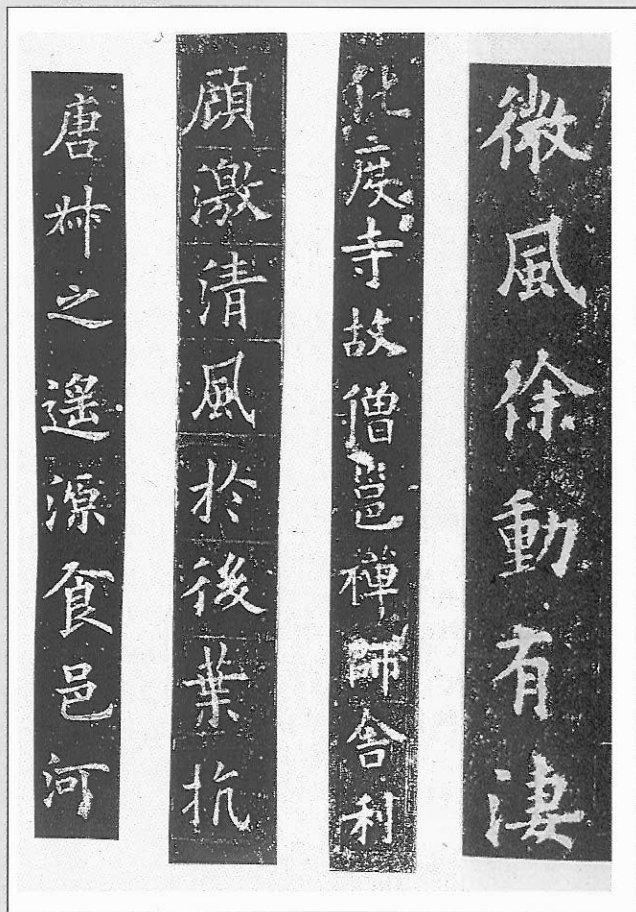 微風徐動有淒
化度寺故僧邕禅師舍利
顧激清風於後葉抗
唐叔之遥源食邑河